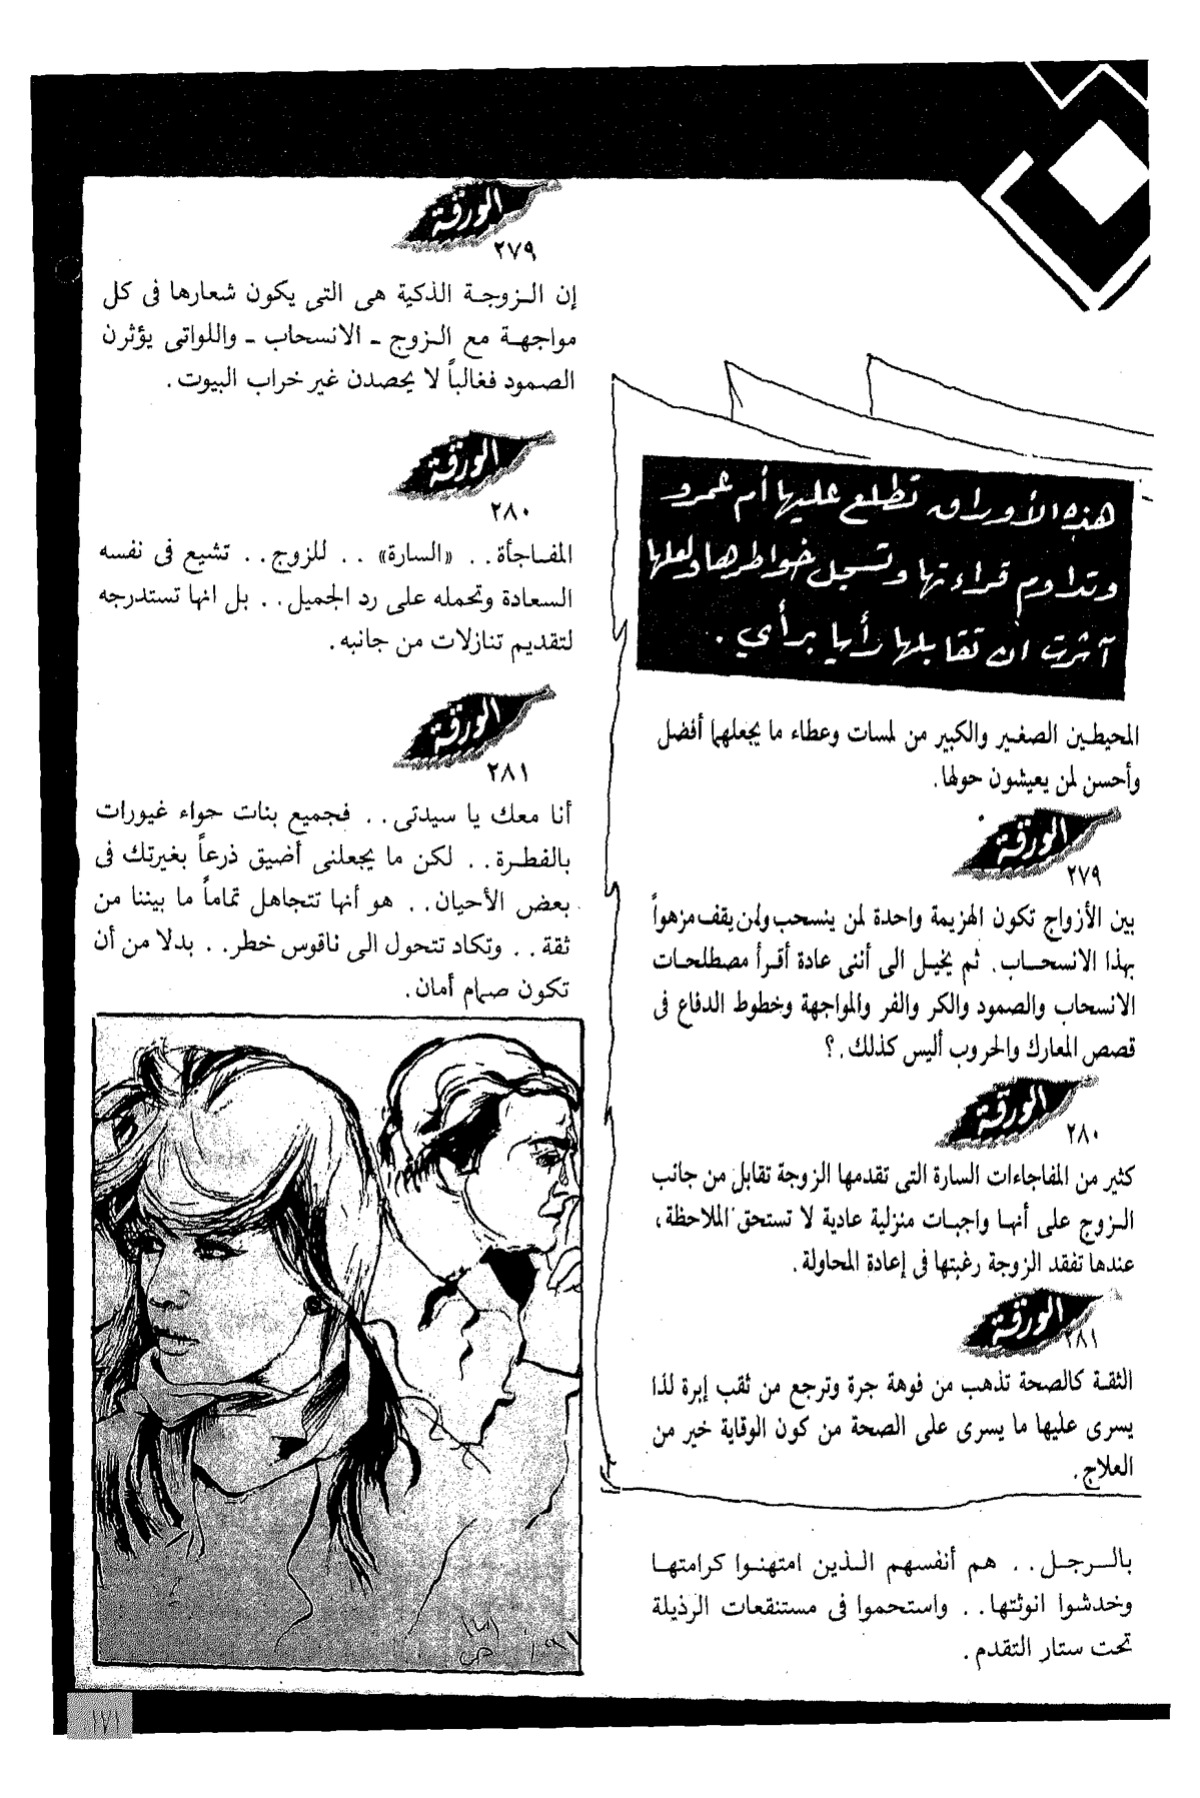 هذه الأوراق تطلع عليها أم عمرو
وتداوم قراءتها وتسجل خواطرها ولعلها
آثرت ان تقابلها رأيا برأي .
المحيطين الصغير والكبير من لمسات وعطاء ما يجعلهما أفضل
وأحسن لمن يعيشون حولها.
الورقة
٢٧٩
بين الأزواج تكون الهزيمة واحدة لمن ينسحب ولمن يقف مزهواً
بهذا الانسحاب. ثم يخيل الى أننى عادة أقرأ مصطلحات
الانسحاب والصمود والكر والفر والمواجهة وخطوط الدفاع فى
قصص المعارك والحروب أليس كذلك.؟
الورقة
٢٨٠
كثير من المفاجاءات السارة التى تقدمها الزوجة تقابل من جانب
الزوج على أنها واجبات منزلية عادية لا تستحق الملاحظة ،
عندها تفقد الزوجة رغبتها فى إعادة المحاولة .
الورقة
٢٨١
الثقة كالصحة تذهب من فوهة جرة وترجع من ثقب إبرة لذا
يسرى عليها ما يسرى على الصحة من كون الوقاية خير من
العلاج.
بالرجل.. هم أنفسهم الذين امتهنوا كرامتها
وخدشوا انوثتها.. واستحموا فى مستنقعات الرذيلة
تحت ستار التقدم .
الورقة
٢٧٩
إن الزوجة الذكية هى التى يكون شعارها فى كل
مواجهة مع الزوج - الانسحاب - واللواتى يؤثرن
الصمود فغالباً لا يحصدن غير خراب البيوت .
الورقة
٢٨٠
المفاجأة.. «السارة» .. للزوج.. تشيع فى نفسه
السعادة وتحمله على رد الجميل.. بل انها تستدرجه
لتقديم تنازلات من جانبه.
الورقة
٢٨١
أنا معك يا سيدتى.. فجميع بنات حواء غيورات
بالفطرة.. لكن ما يجعلنى أضيق ذرعاً بغيرتك فى
بعض الأحيان.. هو أنها تتجاهل تماماً ما بيننا من
ثقة.. وتكاد تتحول الى ناقوس خطر.. بدلا من أن
تكون صمام أمان.
١٧١